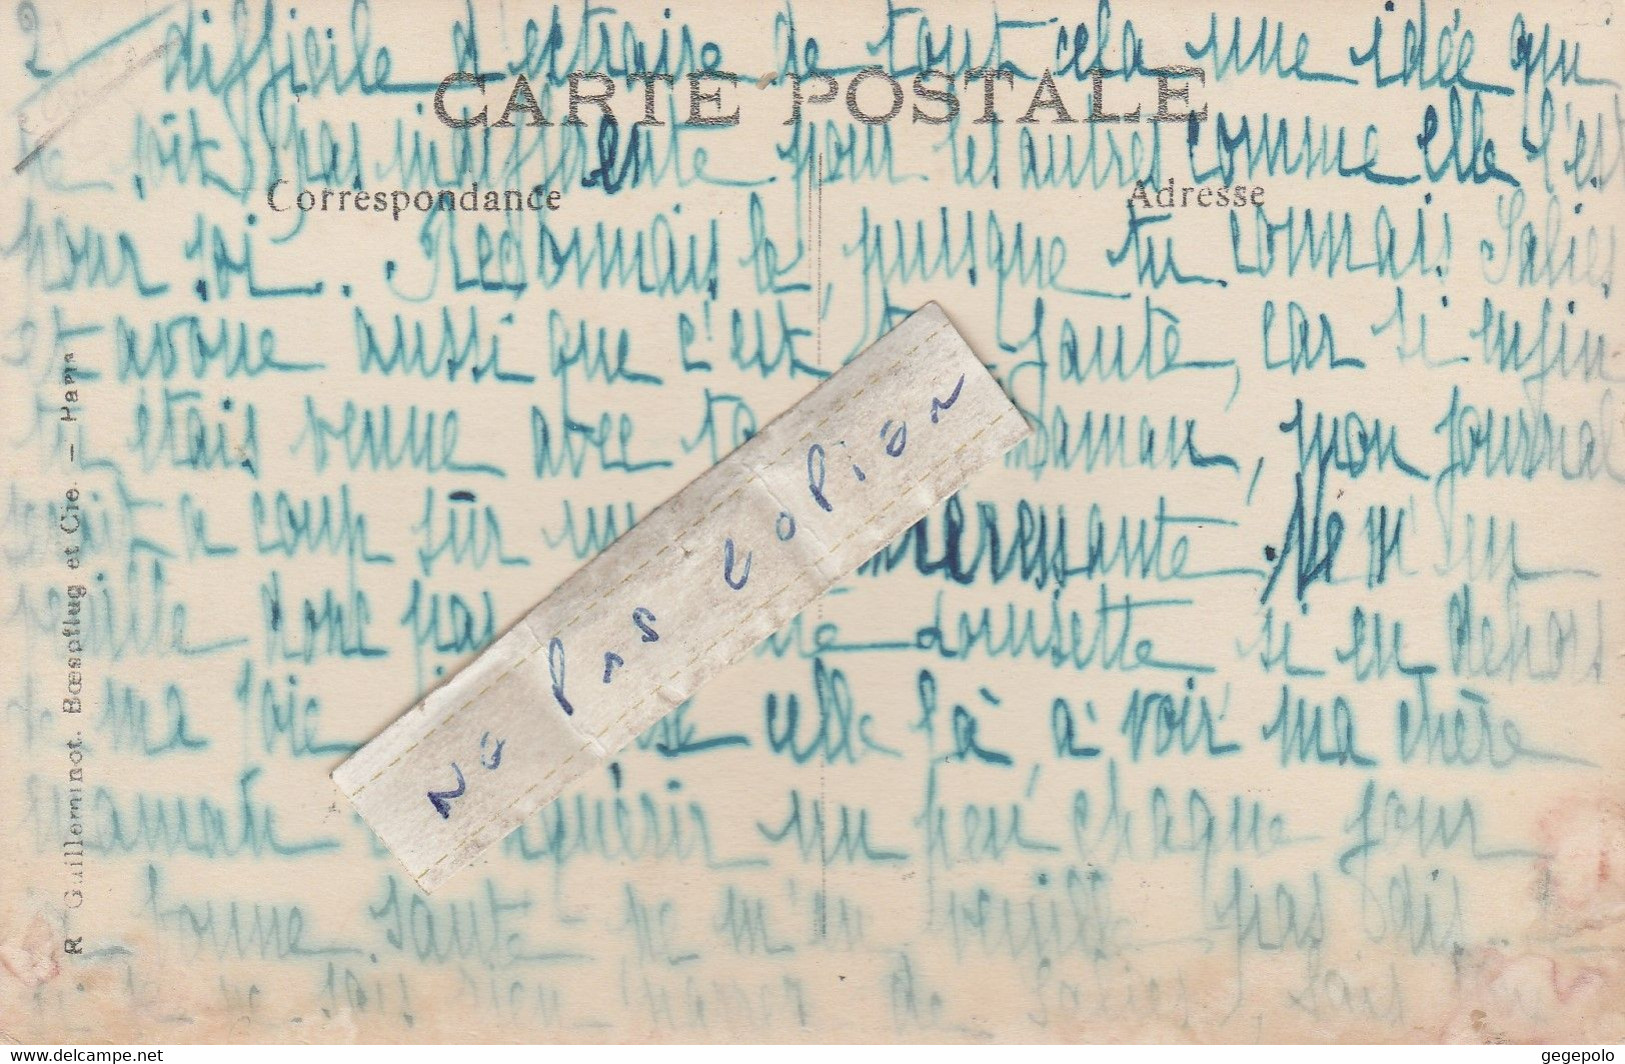 2 difficile d'extraire de tout cela une idée qui
CARTE POSTALE
ne soit pas indifférente pour les autres comme elle l'est
Correspondance
Adresse
pour soi.. Reconnais le, puisque tu connais Salies
et avoue aussi que c'est ta faute, car si enfin
tu étais venue avec ta maman, mon journal
serait a coup sûr interessante. Ne m'en
veuille donc pas Lousette si en dehors
de ma joie celle là, à voir ma chère
maman acquérir un peu chaque jour
bonne santé - ne m'en veuille pas dis
de Salies, sais tu
No pas copier
R. Guilleminot. Bœspflug et Cie. — Paris
gegepolo